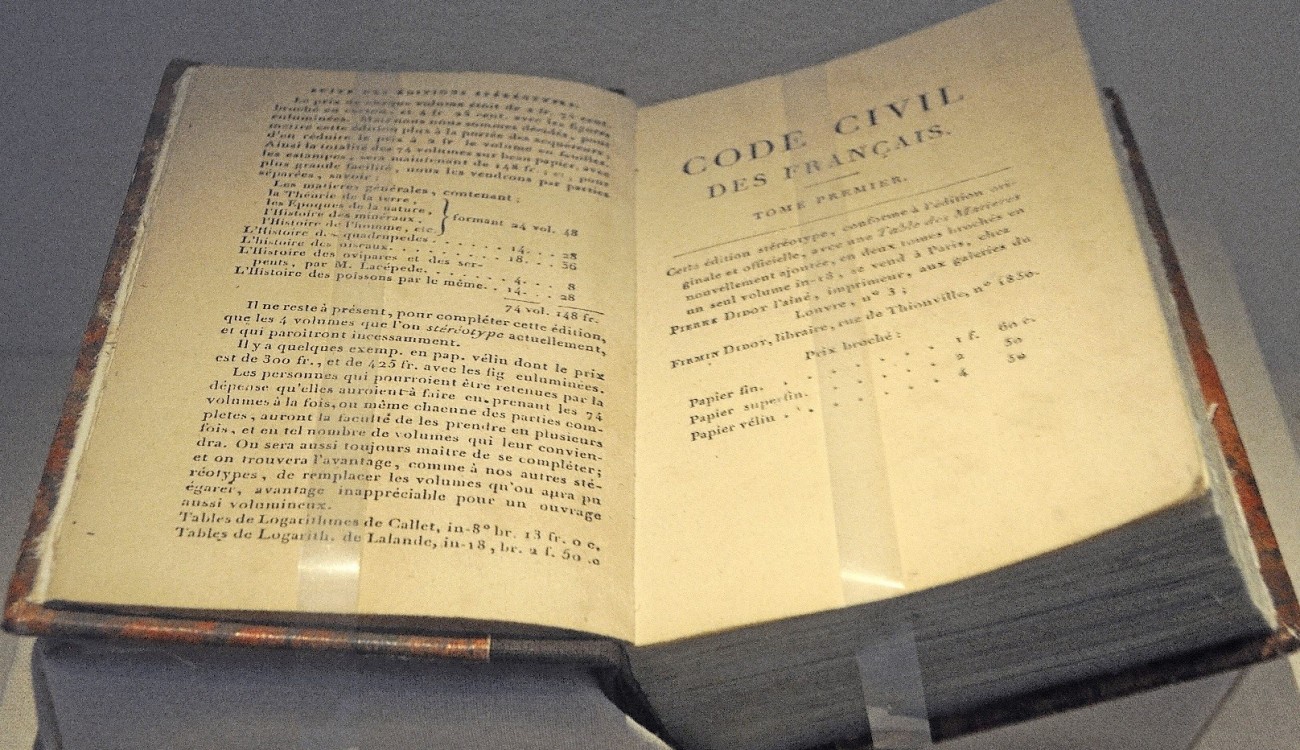 SUITE DES ÉDITIONS STÉRÉOTYPES.
Le prix de chaque volume étoit de 2 fr. 75 cent.
broché en carton, et 4 fr. 25 cent. avec les figures
enluminées. Mais nous nous sommes décidés, pour
mettre cette édition plus à la portée des acquéreurs,
d'en réduire le prix à 2 fr. le volume en feuilles.
Ainsi la totalité des 74 volumes sur beau papier, avec
les estampes, sera maintenant de 148 fr. ; et, pour
plus grande facilité, nous les vendrons par parties
séparées, savoir :
Les matieres générales, contenant :
la Théorie de la terre,
les Epoques de la nature,
l'Histoire des minéraux,
l'Histoire de l'homme, etc.
} formant 24 vol. 48
L'Histoire des quadrupedes . . . . . . . 14. . . 28
L'histoire des oiseaux. . . . . . . . . 18. . . 36
L'Histoire des ovipares et des ser-
pents, par M. Lacépede. . . . . . . 4. . . 8
L'Histoire des poissons par le même. . 14. . . 28
74 vol. 148 fr.
Il ne reste à présent, pour compléter cette édition,
que les 4 volumes que l'on stéréotype actuellement,
et qui paroitront incessamment.
Il y a quelques exemp. en pap. vélin dont le prix
est de 300 fr., et de 425 fr. avec les fig. enluminées.
Les personnes qui pourroient être retenues par la
dépense qu'elles auroient à faire en prenant les 74
volumes à la fois, ou même chacune des parties com-
pletes, auront la faculté de les prendre en plusieurs
fois, et en tel nombre de volumes qui leur convien-
dra. On sera aussi toujours maître de se compléter;
et on trouvera l'avantage, comme à nos autres sté-
réotypes, de remplacer les volumes qu'on aura pu
égarer, avantage inappréciable pour un ouvrage
aussi volumineux.
Tables de Logarithmes de Callet, in-8° br. 13 fr. 0 c.
Tables de Logarith. de Lalande, in-18, br. 2 f. 50 c
CODE CIVIL
DES FRANÇAIS.
TOME PREMIER.
Cette édition stéréotype, conforme à l'édition ori-
ginale et officielle, avec une Table des Matieres
nouvellement ajoutée, en deux tomes brochés en
un seul volume in-18, se vend à Paris, chez
PIERRE DIDOT l'aîné, imprimeur, aux galeries du
Louvre, n° 3 ;
FIRMIN DIDOT, libraire, rue de Thionville, n° 1850.
Prix broché :
Papier fin. . . . . . . 1 f. 60 c.
Papier superfin. . . . . . 2 50
Papier vélin . . . . . . . 4 50